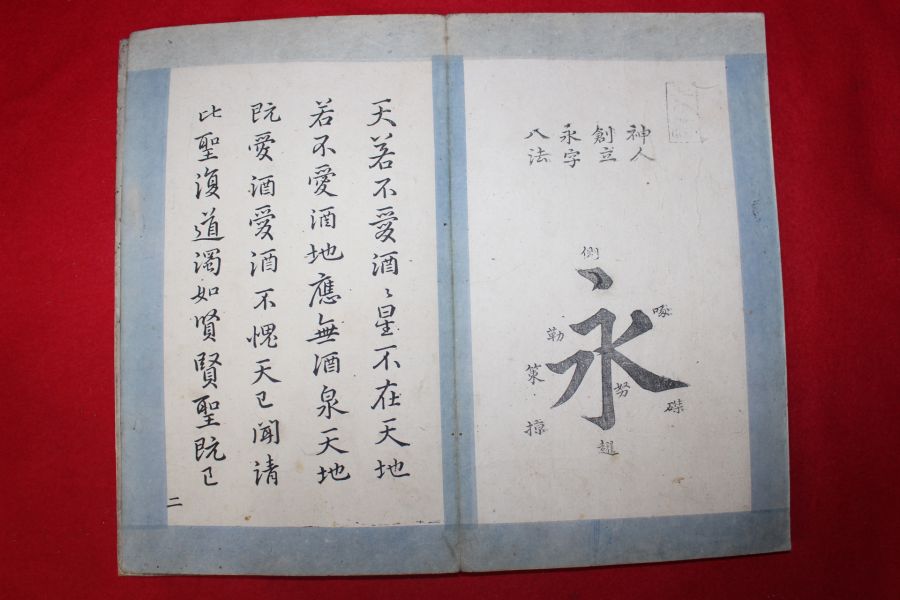 神人
創立
永字
八法
側
啄
勒
永
策
努
磔
掠
趯
天若不愛酒〻星不在天地
若不愛酒地應無酒泉天地
既愛酒愛酒不愧天已聞請
比聖復道濁如賢賢聖既已
二